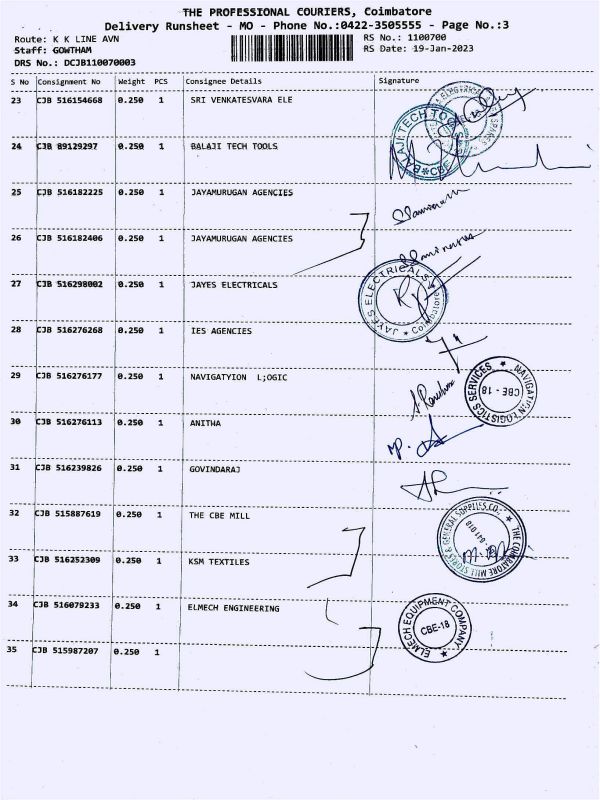 THE PROFESSIONAL COURIERS, Coimbatore
Delivery Runsheet - MO - Phone No.:0422-3505555 - Page No.:3
Route: K K LINE AVN RS No.: 1100700
Staff: GOWTHAM RS Date: 19-Jan-2023
DRS No.: DCJB110070003
S No Consignment No Weight PCS Consignee Details Signature
23 CJB 516154668 0.250 1 SRI VENKATESVARA ELE
24 CJB 89129297 0.250 1 BALAJI TECH TOOLS
BALAJI TECH TOOLS * CBE *
25 CJB 516182225 0.250 1 JAYAMURUGAN AGENCIES
26 CJB 516182406 0.250 1 JAYAMURUGAN AGENCIES
27 CJB 516298002 0.250 1 JAYES ELECTRICALS
JAYES ELECTRICALS * Coimbatore *
28 CJB 516276268 0.250 1 IES AGENCIES
29 CJB 516276177 0.250 1 NAVIGATYION L;OGIC
NAVIGATION LOGISTICS SERVICES * CBE - 18
30 CJB 516276113 0.250 1 ANITHA
31 CJB 516239826 0.250 1 GOVINDARAJ
32 CJB 515887619 0.250 1 THE CBE MILL
THE COIMBATORE MILL STORES & GENERAL SUPPLIES CO.,
33 CJB 516252309 0.250 1 KSM TEXTILES
34 CJB 516079233 0.250 1 ELMECH ENGINEERING
ELMECH EQUIPMENT COMPANY * CBE-18
35 CJB 515987207 0.250 1